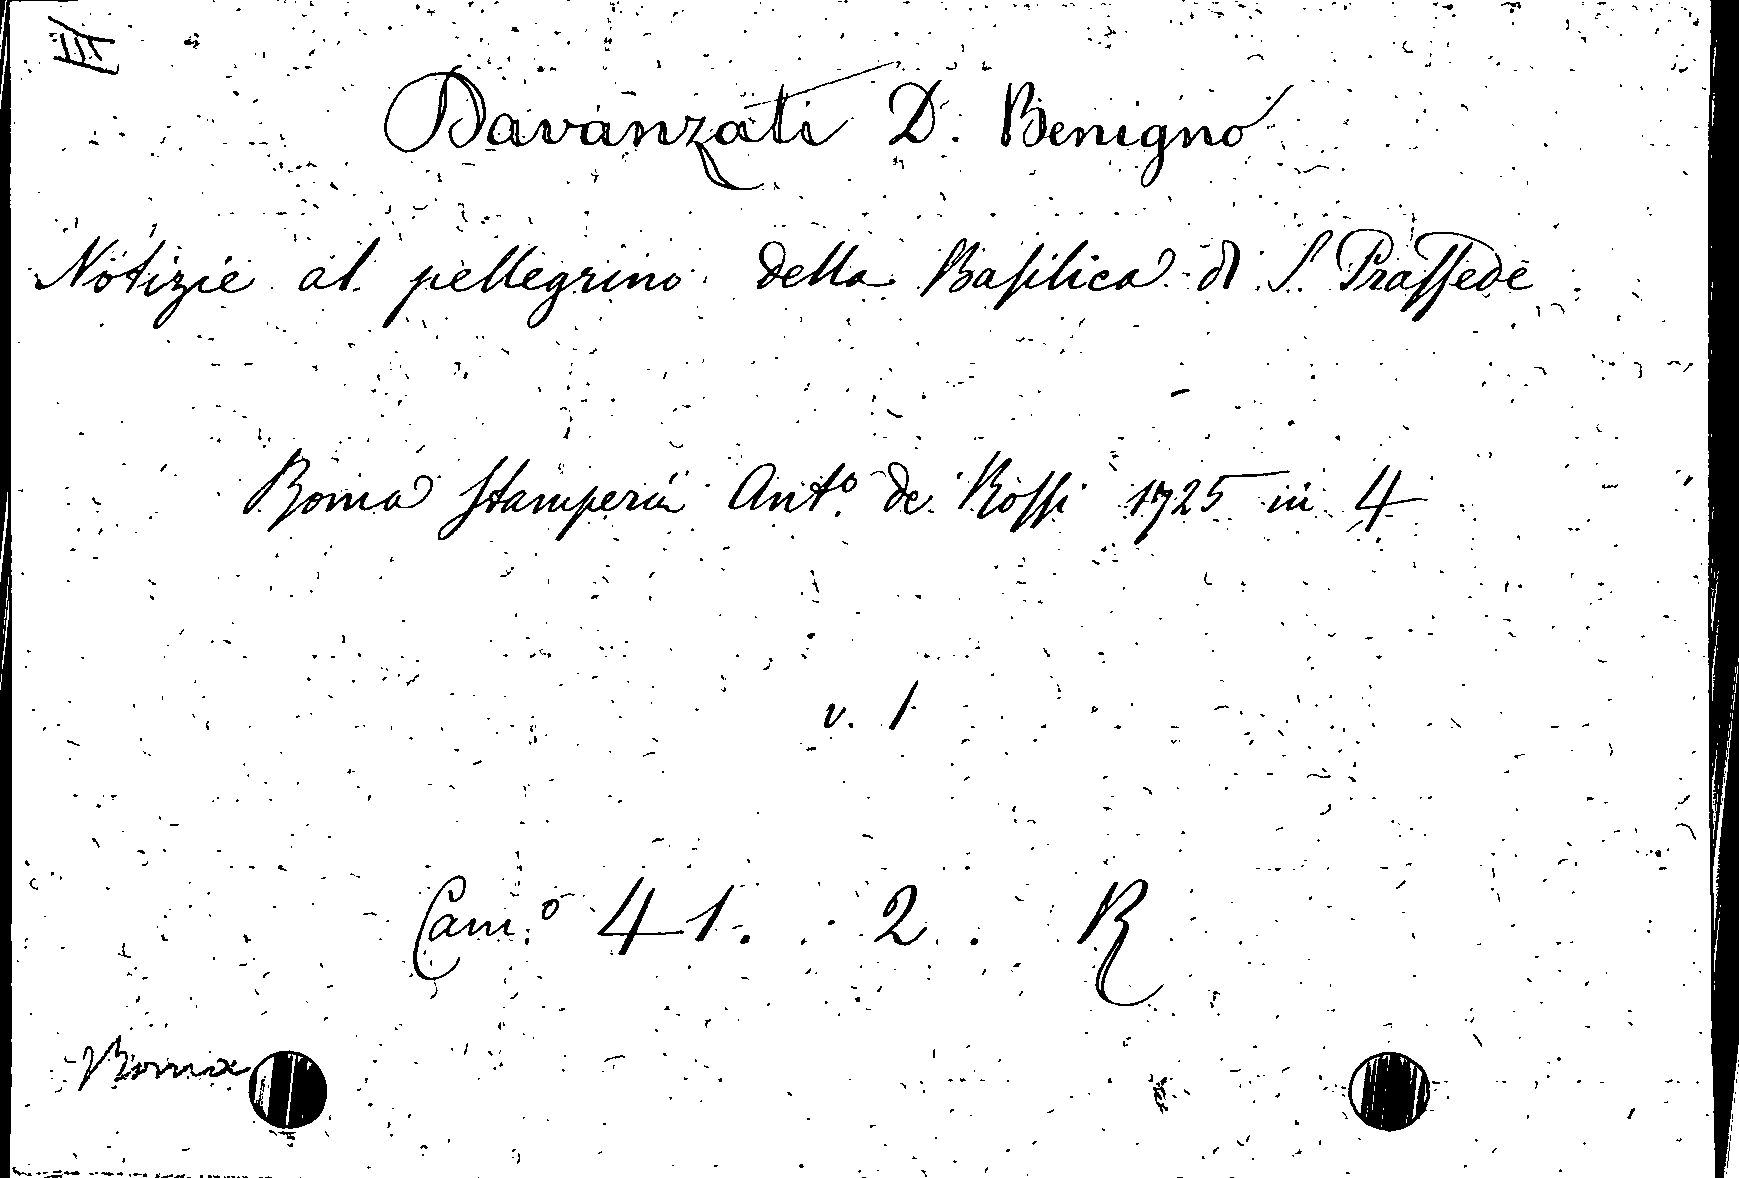 III
Davanzati D. Benigno
Notizie al pellegrino della Basilica di S. Prassede
Roma Stamperia Ant.º de Rossi 1725 in 4
v. 1
Cam.º 41. 2. R
Roma